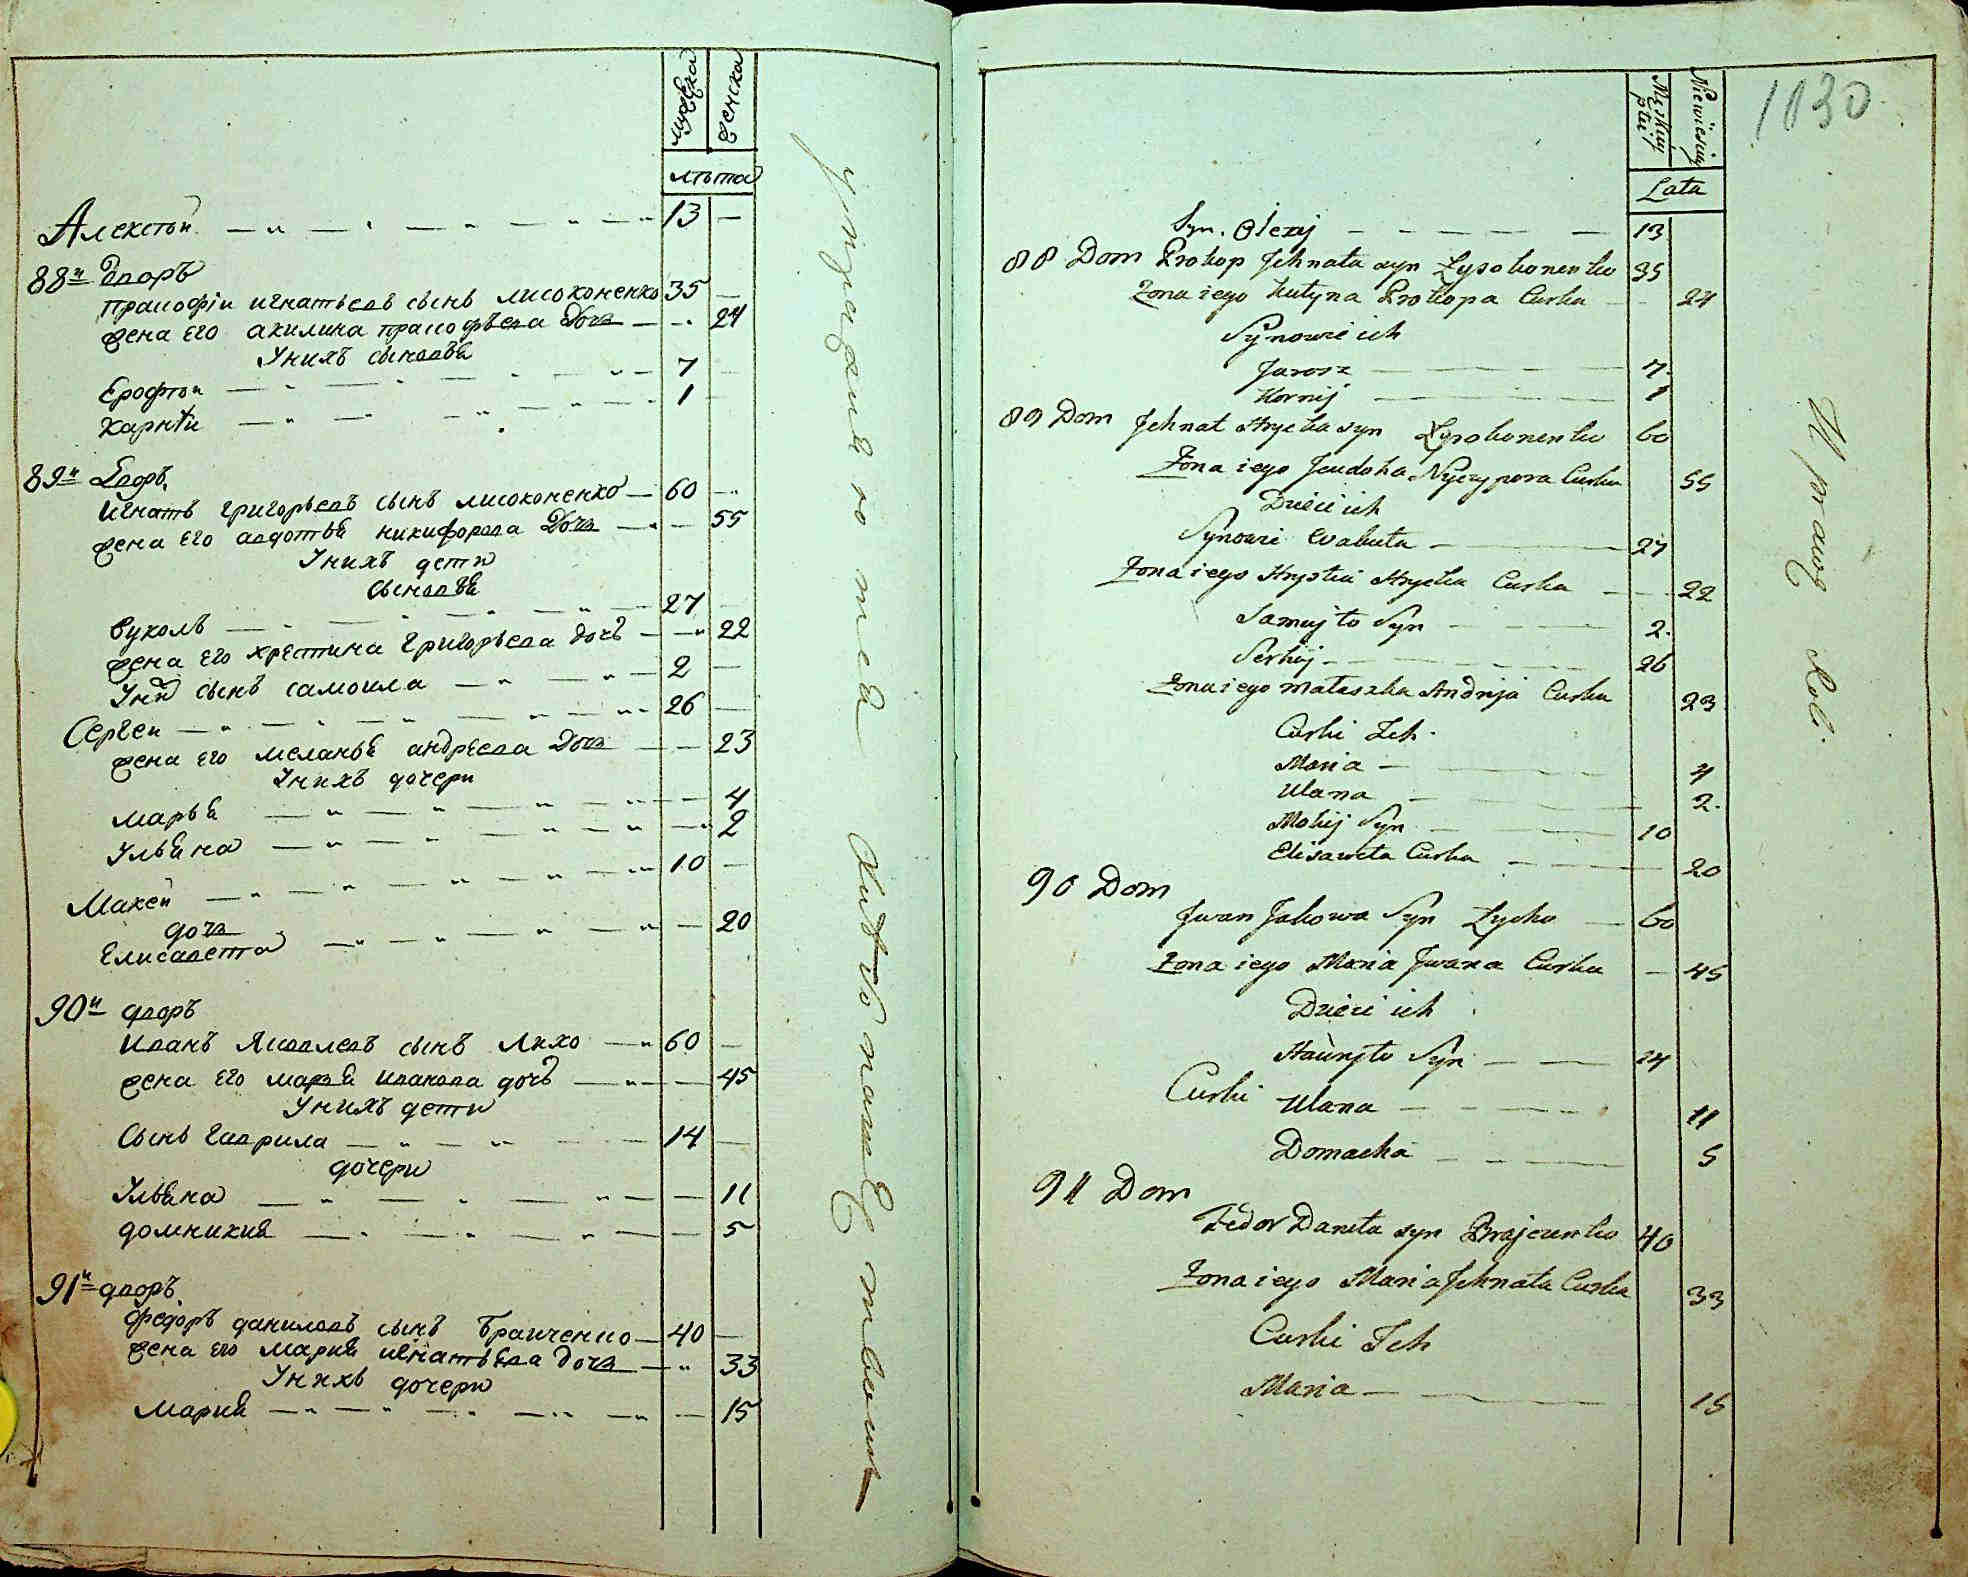 мужеска
женска
лѣта
Алексѣй 13 —
88й дворъ
Пракофіи игнатьевъ сынъ лисоконенко 35 —
жена его акилина пракофьева дочь — 24
У нихъ сыновья
Ерофѣи 7 —
Карнѣи 1
89й дворъ
Игнатъ григорьевъ сынъ лисоконенко 60 —
жена его авдотья никифорова дочь — 55
У нихъ дети
Сыновья
Вуколъ 27 —
жена его хрестина григорьева дочь — 22
У ни сынъ самоила 2 —
Сергеи 26 —
жена его меланья андреева дочь — 23
У нихъ дочери
марья — 4
Ульяна — 2
Макей 10 —
дочь
Елисавета — 20
90й дворъ
Иванъ Яковлевъ сынъ Лихо 60 —
жена его марья иванова дочь — 45
У нихъ дети
Сынъ гаврила 14 —
дочери
Ульяна — 11
домникия — 5
91й дворъ
федоръ даниловъ сынъ браиченко 40 —
жена его мария игнатьева дочь — 33
У нихъ дочери
Мария — 15
упражнѣю тса
Męskiey płci
Niewiesciey
Lata
1030
Syn. Olexij 13
88 Dom Prokop Jehnata syn Łysokonenko 35
Zona iego Kulyna Prokopa Curka 24
Synowie ich
Jarosz 7.
Kornij 1
89 Dom Jehnat Hrycka syn Łysokonenko 60
Zona iego Jeudoka Nyczypora Curka 55
Dzieci ich
Synowie Wakuła 27
Zona iego Hrystia Hrycka Curka 22
Samujło Syn 2.
Serhij 26
Zona iego Małaszka Andrija Curka 23
Curki Ich.
Maria 4
Ulana 2.
Mokij Syn 10
Elisaweta Curka 20
90 Dom
Jwan Jakowa Syn Łycho 60
Zona iego Maria Jwana Curka 45
Dzieci ich
Hauryło Syn 14
Curki Ulana 11
Domacha 5
91 Dom
Fedor Daneła syn Brajczenko 40
Zona iego Maria Jehnata Curka 33
Curki Ich
Maria 15
Upraią Roli.